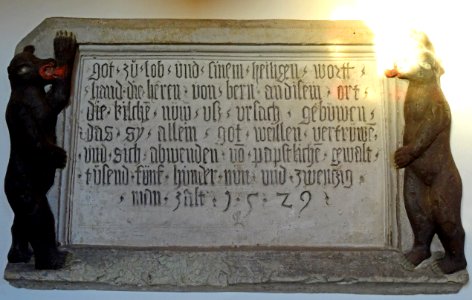 got · zů · lob · und · sinem · heiligen · wortt ·
hand · die · heren · von · bern · an disem · ort ·
die · kilchē · nüw · uß · ursach · gebuwen ·
das · sy · allein · got · wellen · vertruwē ·
und · sich · abwenden · vō · päpstlichē · gewalt ·
tusend · fünf · hunder · nün · und · zwenzig
man · zalt · 1 · 5 · 29